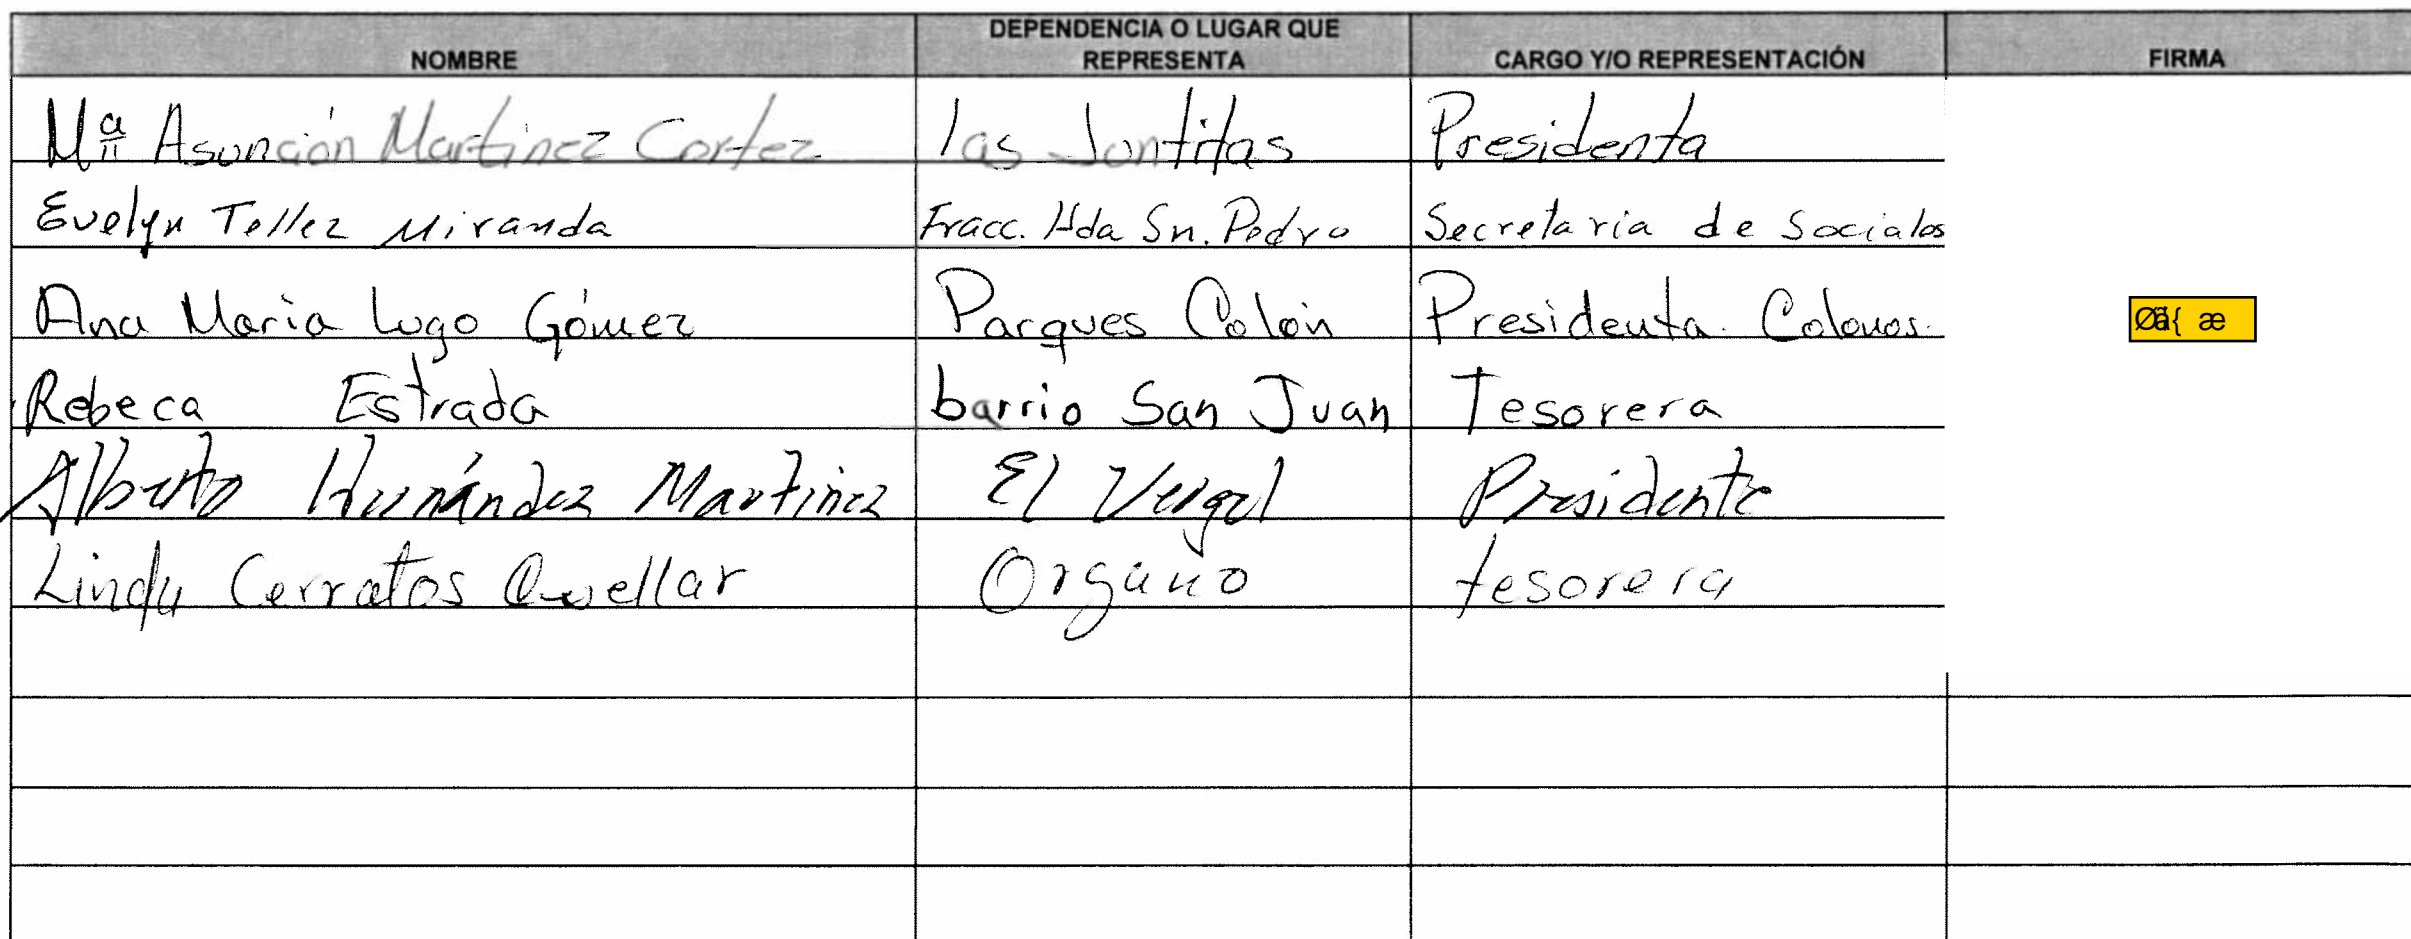 NOMBRE DEPENDENCIA O LUGAR QUE REPRESENTA CARGO Y/O REPRESENTACIÓN FIRMA
Mª Asunción Martinez Cortez las Juntitas Presidenta
Evelyn Tellez Miranda Fracc. Hda Sn. Pedro Secretaria de Sociales
Ana Maria Lugo Gómez Parques Colón Presidenta Colonos.
Rebeca Estrada barrio San Juan Tesorera
Alberto Hernández Martinez El Vergel Presidente
Linda Cerratos Organo tesorera